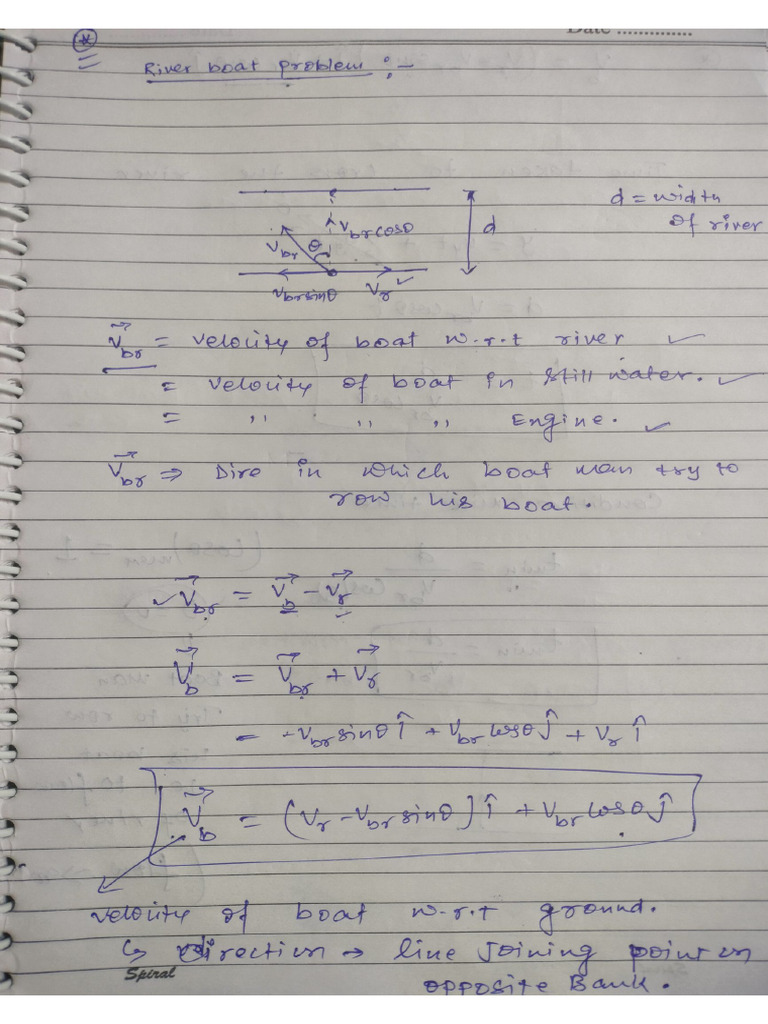 Date ..............
*
River boat problem :-
d = width
of river
V⃗br
θ
Vbr cosθ
d
Vbr sinθ
V⃗r ✓
V⃗br = velocity of boat w.r.t river ✓
= velocity of boat in still water. ✓
= ,, ,, ,, Engine. ✓
V⃗br ⇒ Dire in which boat man try to
row his boat.
✓ V⃗br = V⃗b - V⃗r
V⃗b = V⃗br + V⃗r
= -Vbr sinθ î + Vbr cosθ ĵ + Vr î
V⃗b = (Vr - Vbr sinθ) î + Vbr cosθ ĵ
velocity of boat w.r.t ground.
↳ Direction → line joining point on
opposite Bank.
Spiral